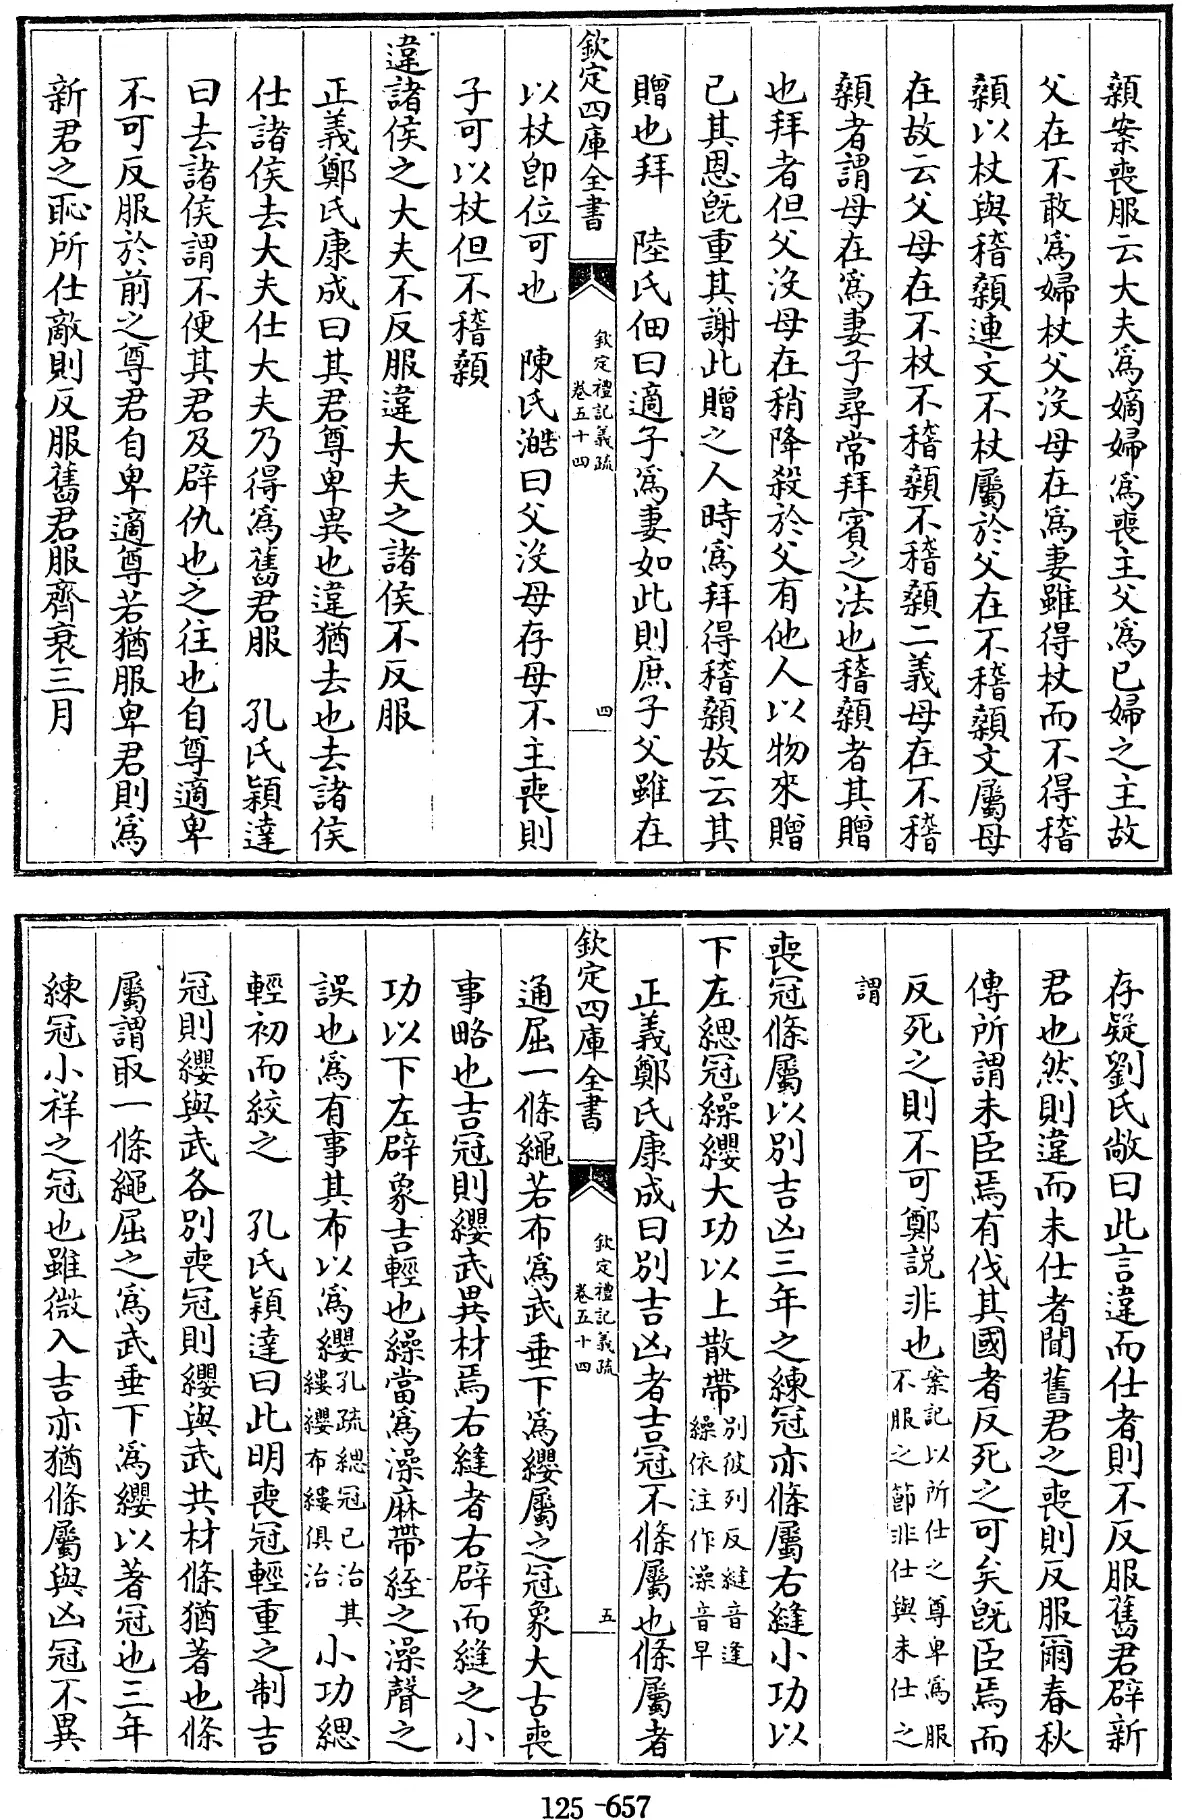 顙案喪服云大夫爲嫡婦爲喪主父爲已婦之主故
父在不敢爲婦杖父沒母在爲妻雖得杖而不得稽
顙以杖與稽顙連文不杖屬於父在不稽顙文屬母
在故云父母在不杖不稽顙不稽顙二義母在不稽
顙者謂母在爲妻子尋常拜賓之法也稽顙者其贈
也拜者但父沒母在稍降殺於父有他人以物來贈
己其恩旣重其謝此贈之人時爲拜得稽顙故云其
贈也拜　陸氏佃曰適子爲妻如此則庶子父雖在
欽定四庫全書
欽定禮記義疏
卷五十四
四
以杖卽位可也　陳氏澔曰父沒母存母不主喪則
子可以杖但不稽顙
違諸侯之大夫不反服違大夫之諸侯不反服
正義鄭氏康成曰其君尊卑異也違猶去也去諸侯
仕諸侯去大夫仕大夫乃得爲舊君服　孔氏穎達
曰去諸侯謂不便其君及辟仇也之往也自尊適卑
不可反服於前之尊君自卑適尊若猶服卑君則爲
新君之恥所仕敵則反服舊君服齊衰三月
存疑劉氏敞曰此言違而仕者則不反服舊君辟新
君也然則違而未仕者聞舊君之喪則反服爾春秋
傳所謂未臣焉有伐其國者反死之可矣旣臣焉而
反死之則不可鄭説非也案記以所仕之尊卑爲服
不服之節非仕與未仕之
謂
喪冠條屬以別吉凶三年之練冠亦條屬右縫小功以
下左緦冠繰纓大功以上散帶別彼列反縫音逢
繰依注作澡音早
正義鄭氏康成曰別吉凶者吉冠不條屬也條屬者
欽定四庫全書
欽定禮記義疏
卷五十四
五
通屈一條繩若布爲武垂下爲纓屬之冠象大古喪
事略也吉冠則纓武異材焉右縫者右辟而縫之小
功以下左辟象吉輕也繰當爲澡麻帶絰之澡聲之
誤也爲有事其布以爲纓孔疏緦冠已治其
縷纓布縷俱治小功緦
輕初而絞之　孔氏穎達曰此明喪冠輕重之制吉
冠則纓與武各別喪冠則纓與武共材條猶著也條
屬謂取一條繩屈之爲武垂下爲纓以著冠也三年
練冠小祥之冠也雖微入吉亦猶條屬與凶冠不異
125-657